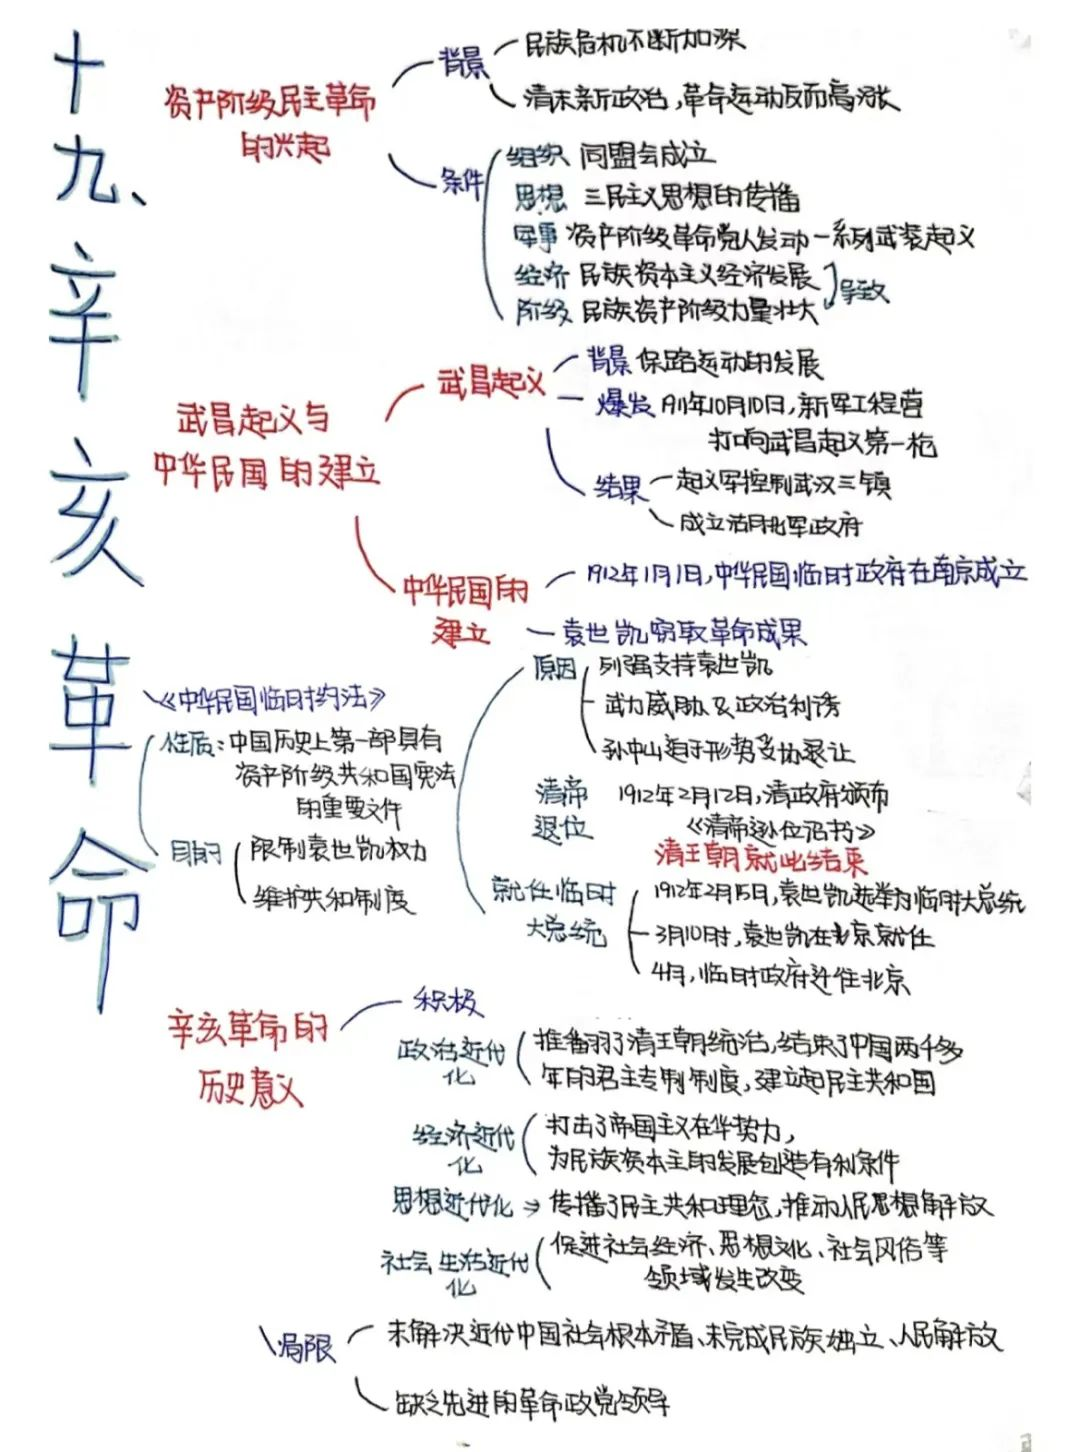 十九、辛亥革命
资产阶级民主革命
的兴起
背景
民族危机不断加深
清末新政治，革命运动反而高涨
条件
组织 同盟会成立
思想 三民主义思想的传播
军事 资产阶级革命党人发动一系列武装起义
经济 民族资本主义经济发展
导致
阶级 民族资产阶级力量壮大
武昌起义与
中华民国的建立
武昌起义
背景 保路运动的发展
爆发 1911年10月10日，新军工程营
打响武昌起义第一枪
结果
起义军控制武汉三镇
成立湖北军政府
中华民国的
建立
1912年1月1日，中华民国临时政府在南京成立
袁世凯窃取革命成果
原因
列强支持袁世凯
武力威胁及政治利诱
孙中山迫于形势妥协退让
清帝
退位
1912年2月12日，清政府颁布
《清帝逊位诏书》
清王朝就此结束
就任临时
大总统
1912年2月15日，袁世凯选举为临时大总统
3月10时，袁世凯在北京就任
4月，临时政府迁往北京
《中华民国临时约法》
性质：中国历史上第一部具有
资产阶级共和国宪法
的重要文件
目的
限制袁世凯权力
维护共和制度
辛亥革命的
历史意义
积极
政治近代
化
推翻了清王朝统治，结束了中国两千多
年的君主专制制度，建立起民主共和国
经济近代
化
打击了帝国主义在华势力，
为民族资本主的发展创造有利条件
思想近代化→传播了民主共和理念，推动人民思想解放
社会生活近代
化
促进社会经济、思想文化、社会风俗等
领域发生改变
局限
未解决近代中国社会根本矛盾、未完成民族独立、人民解放
缺乏先进的革命政党领导